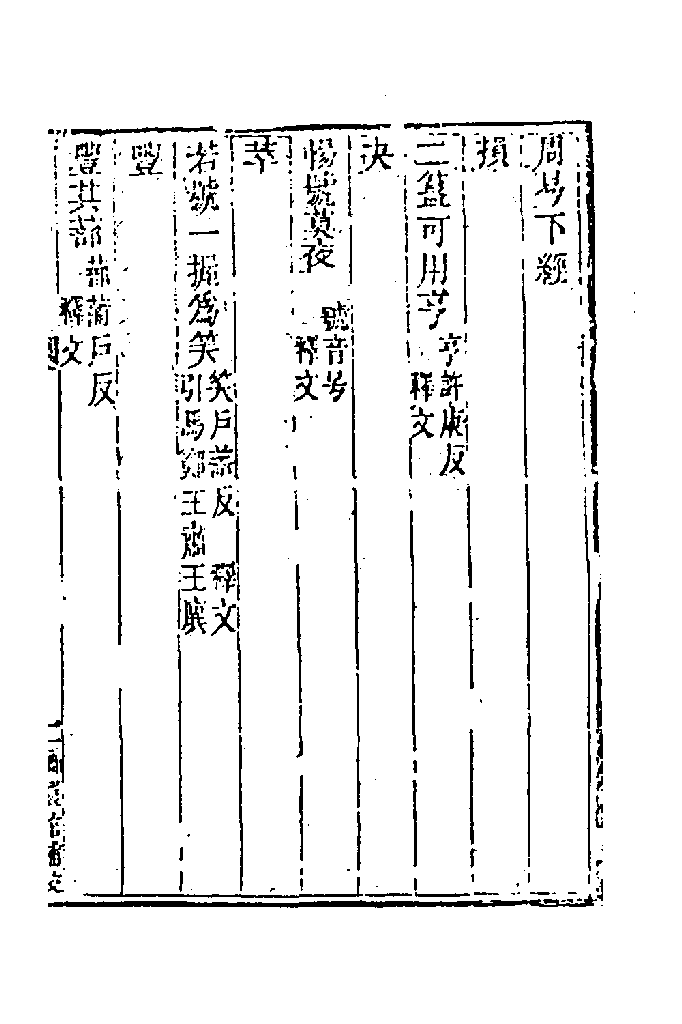 周易下經
損
二簋可用亨 亨許庚反 釋文
夬
惕號莫夜 號音号 釋文
萃
若號一握爲笑 笑戶誥反 釋文 引馬鄭王肅王廙
豐
豐其蔀 蔀蒲戶反 釋文